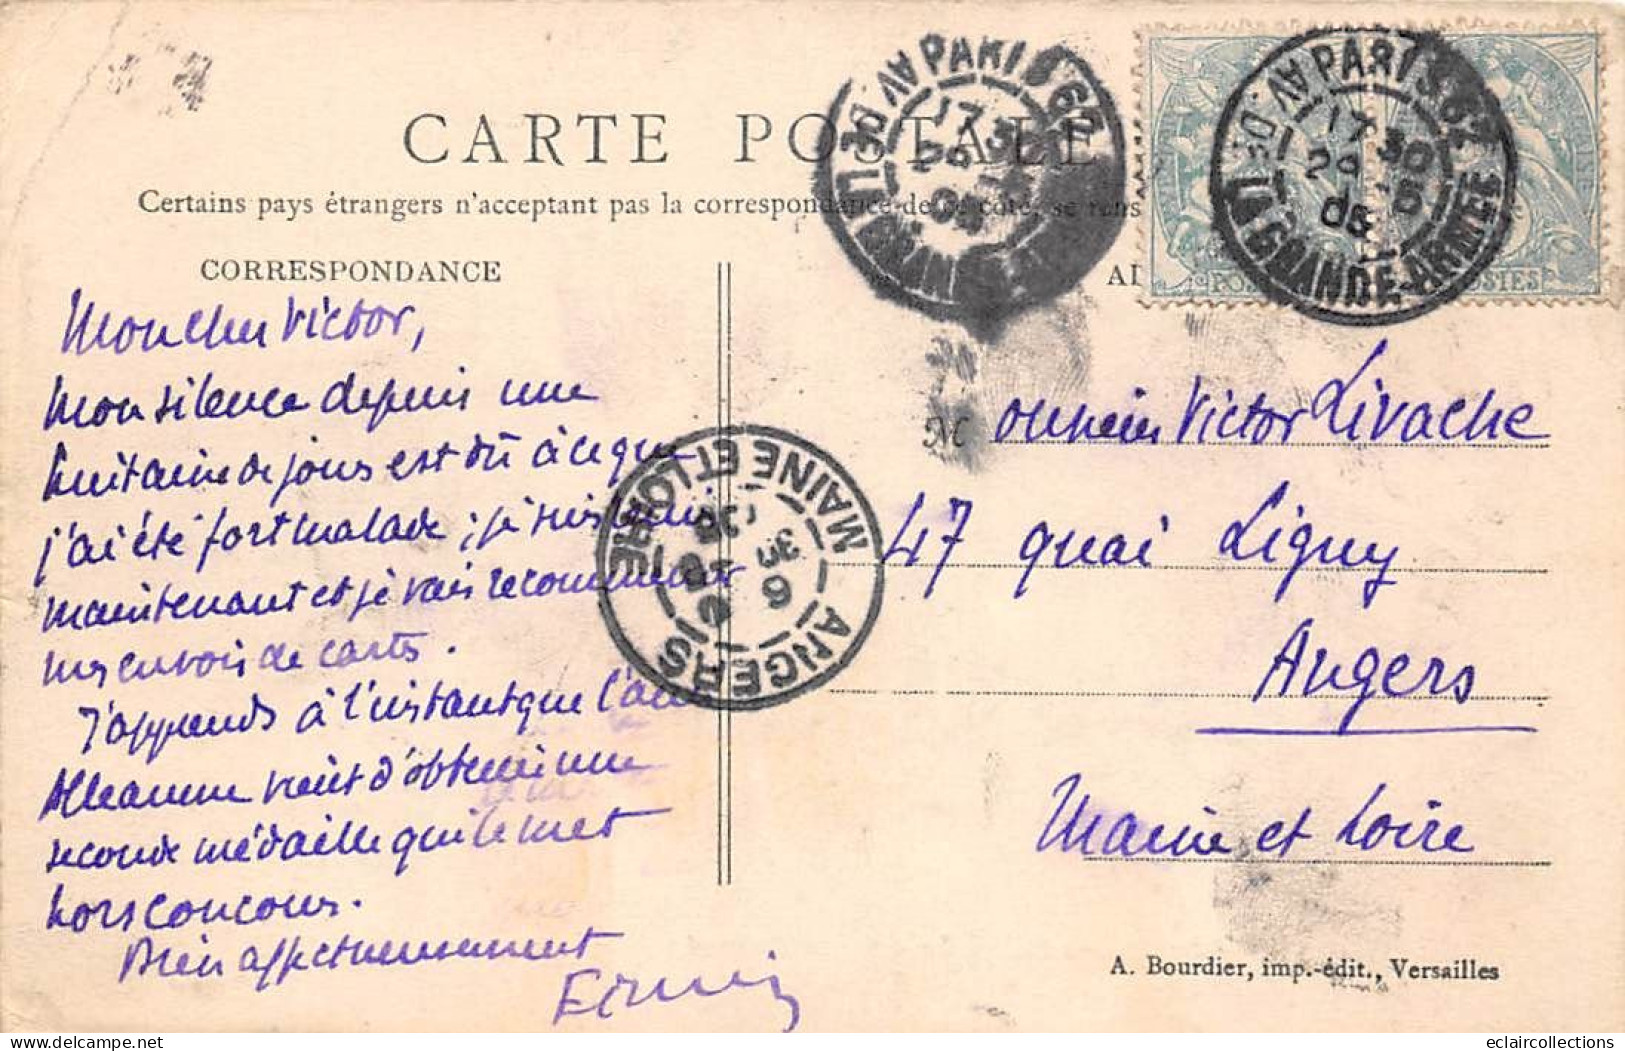 CARTE POSTALE
Certains pays étrangers n'acceptent pas la correspondance de ce côté, se rens
CORRESPONDANCE
Mon cher Victor,
Mon silence depuis une
huitaine de jours est dû à ce que
j'ai été fort malade ; je suis
maintenant et je vais recommencer
mes envois de cartes.
J'apprends à l'instant que l'ami
Alleaume vient d'obtenir une
seconde médaille qui le met
hors concours.
Bien affectueusement
PARIS 62
AV. DE LA GRANDE-ARMÉE
17 30
29 5
05
PARIS 62
AV. DE LA GRANDE-ARMÉE
17 30
29 5
05
POSTES
ANGERS
MAINE ET LOIRE
Monsieur Victor Livache
47 quai Ligny
Angers
Maine et Loire
A. Bourdier, imp.-édit., Versailles
eclaircollections